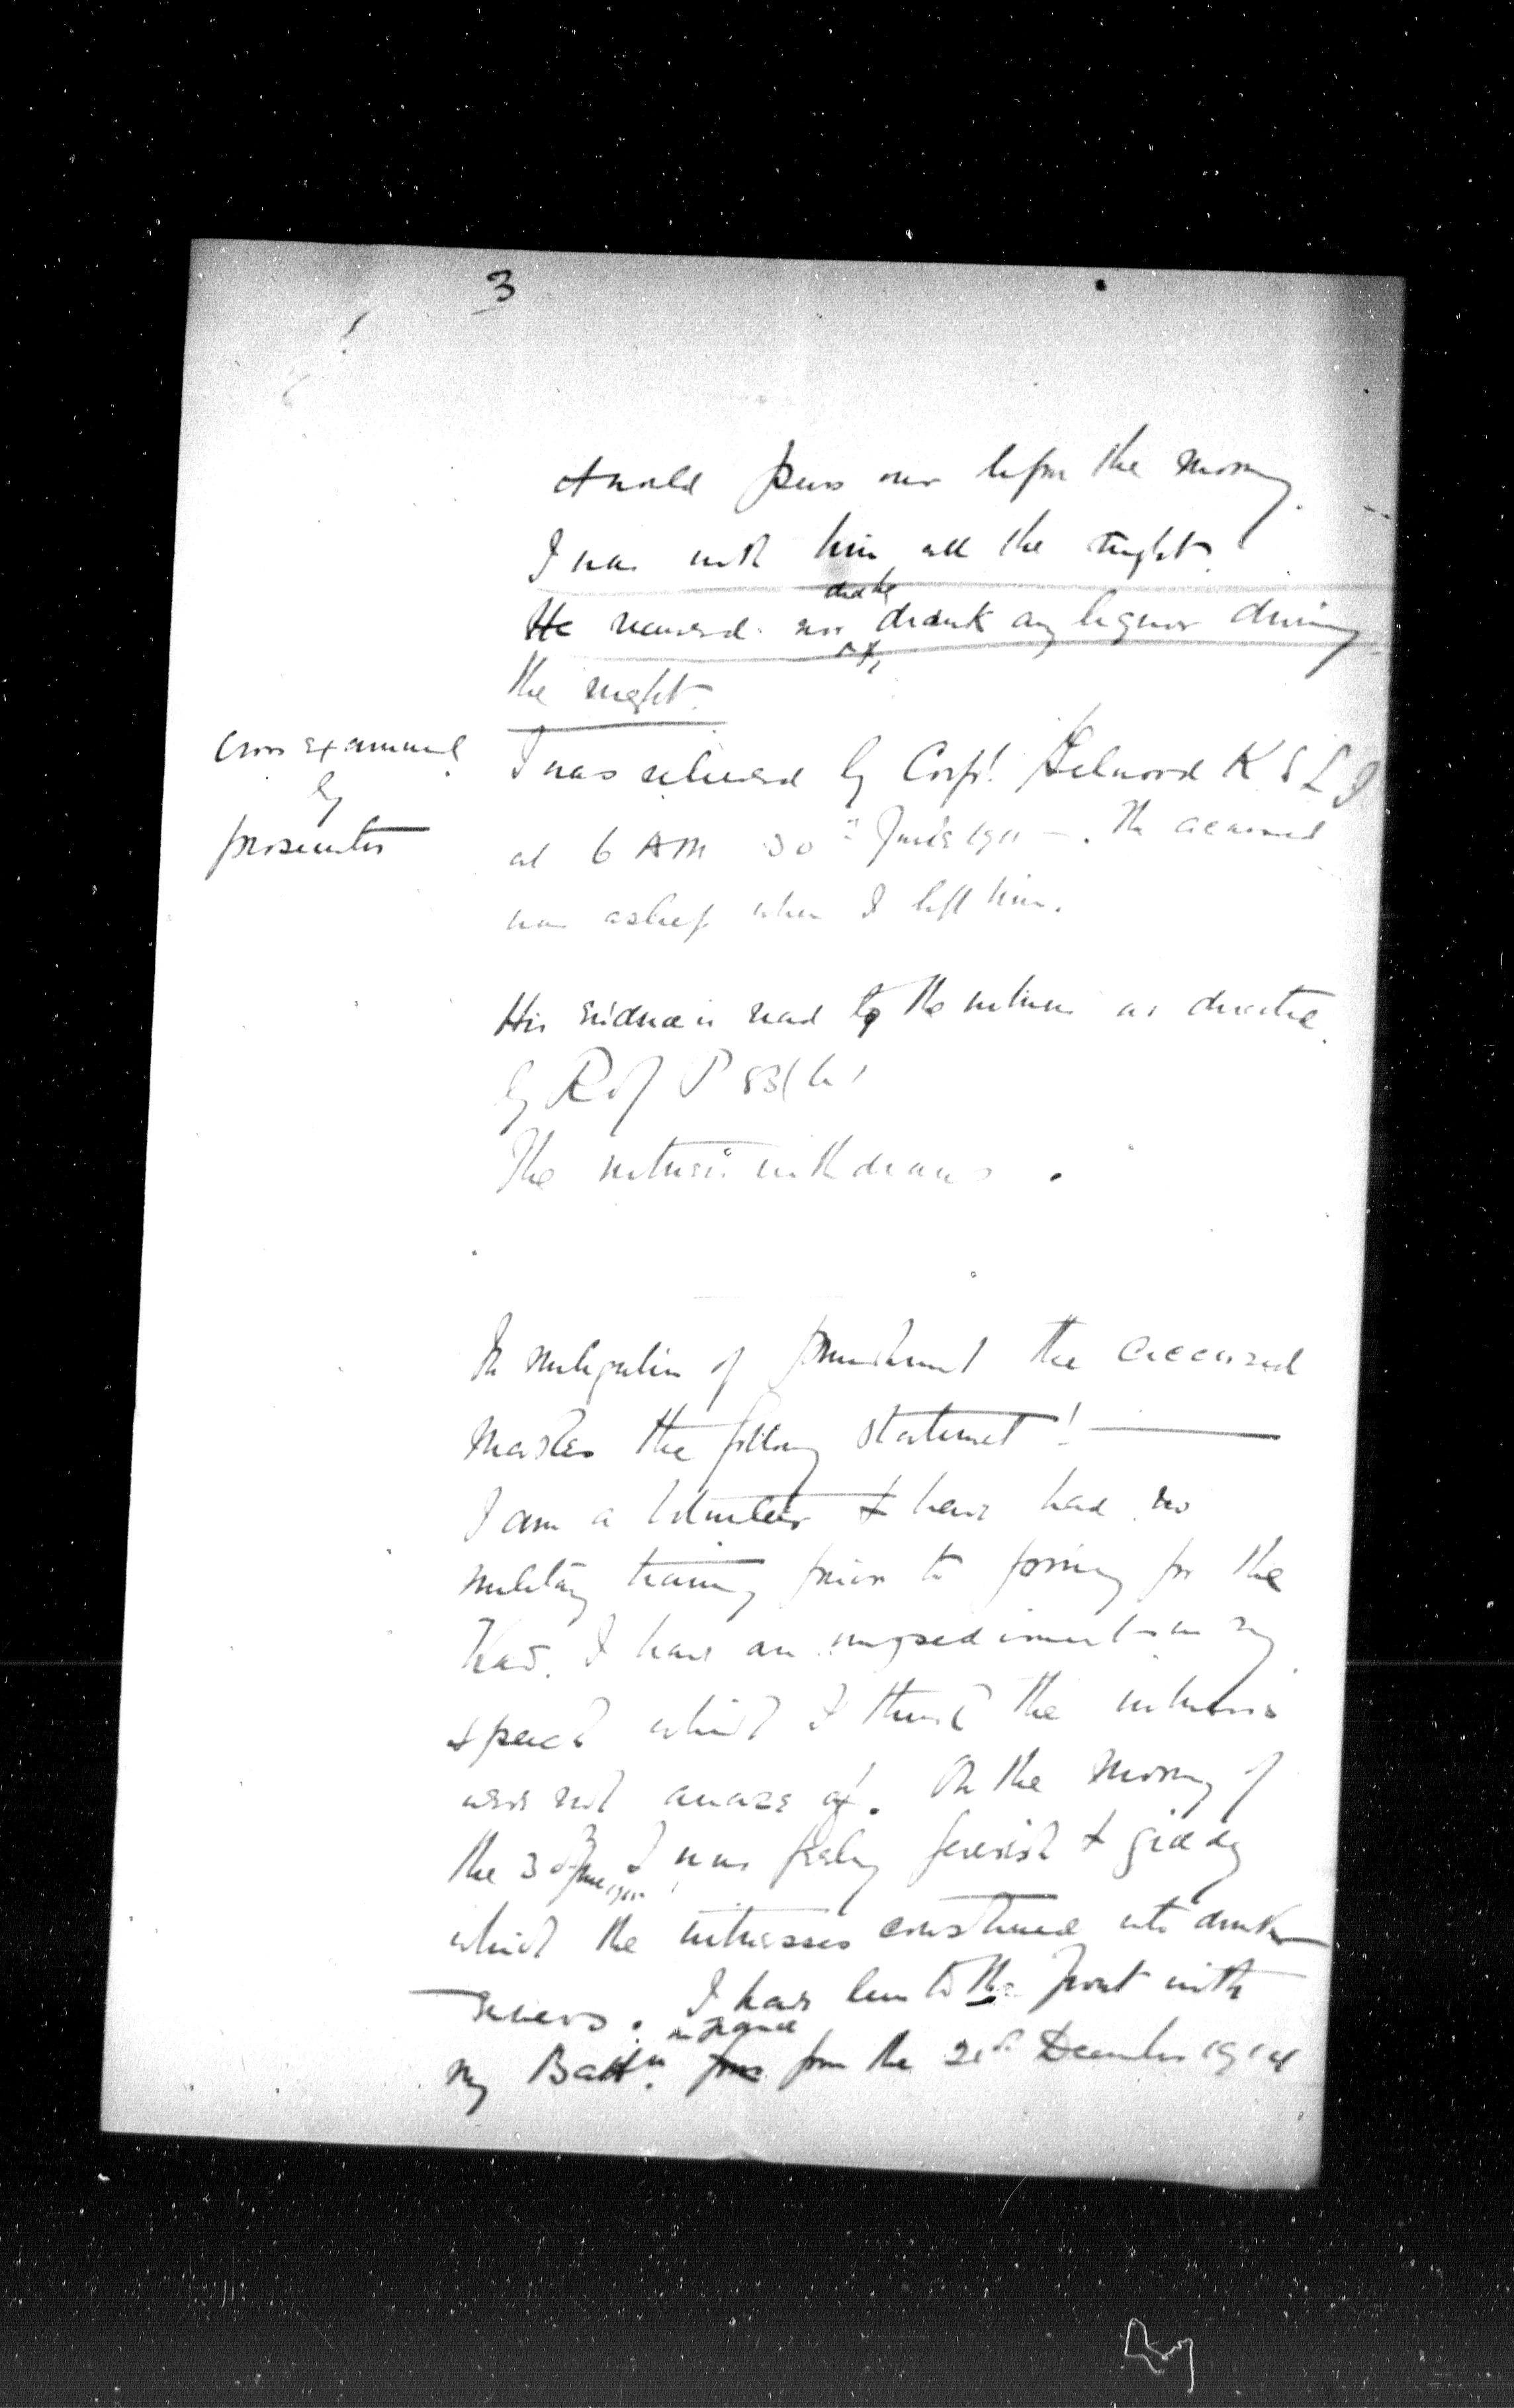 3
would pass over before the morning.
I was with him all the night.
He received nor did he drink any liquor during
the night.
cross examined
by
prosecutor
I was relieved by Corpl. K S L I
at 6 AM 30th June 1915. The accused
was asleep when I left him.
His evidence is read to the witness as directed
by R of P 83(b)
The witness withdraws.
In mitigation of punishment the accused
makes the following statement:
I am a Volunteer & have had no
military training prior to joining for the
War. I have an impediment in my
speech which I think the witnesses
were not aware of. On the morning of
the 30th June 1915 I was feeling feverish & giddy
which the witnesses construed into drunken
ness. I have been to the Front with
my Battn. in France from the 21st December 1914